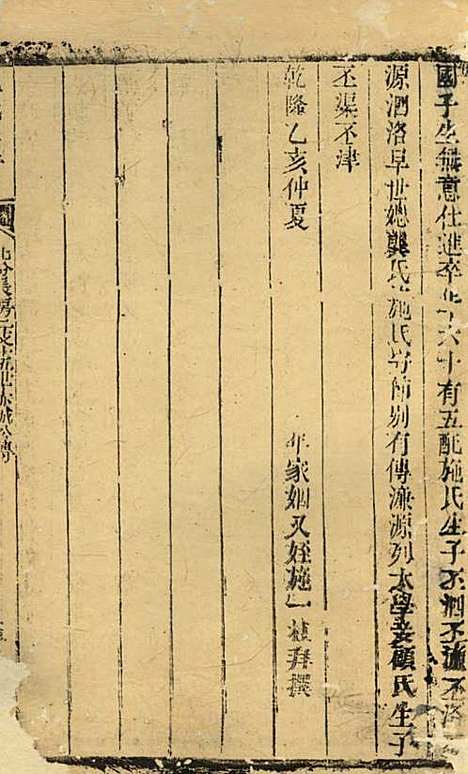 國子生無意仕進卒年六十有五配施氏生子丕泗丕濂丕洛
源泗洛早世媳龔氏施氏守節別有傳濂源列太學妾顧氏生子
丕渠丕津
乾隆乙亥仲夏　年家姻又姪施一植拜撰
世赤城公傳